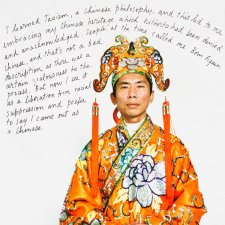 I learned Taoism, a Chinese philosophy, and this led to me
embracing my Chinese heritage which hitherto had been denied
and unacknowledged. People at the time called me Born Again
Chinese, and that's not a bad
description as there was a
certain zealousness to the
process. But now I see it
as a liberation from racial
suppression and prefer
to say I came out as
a Chinese.